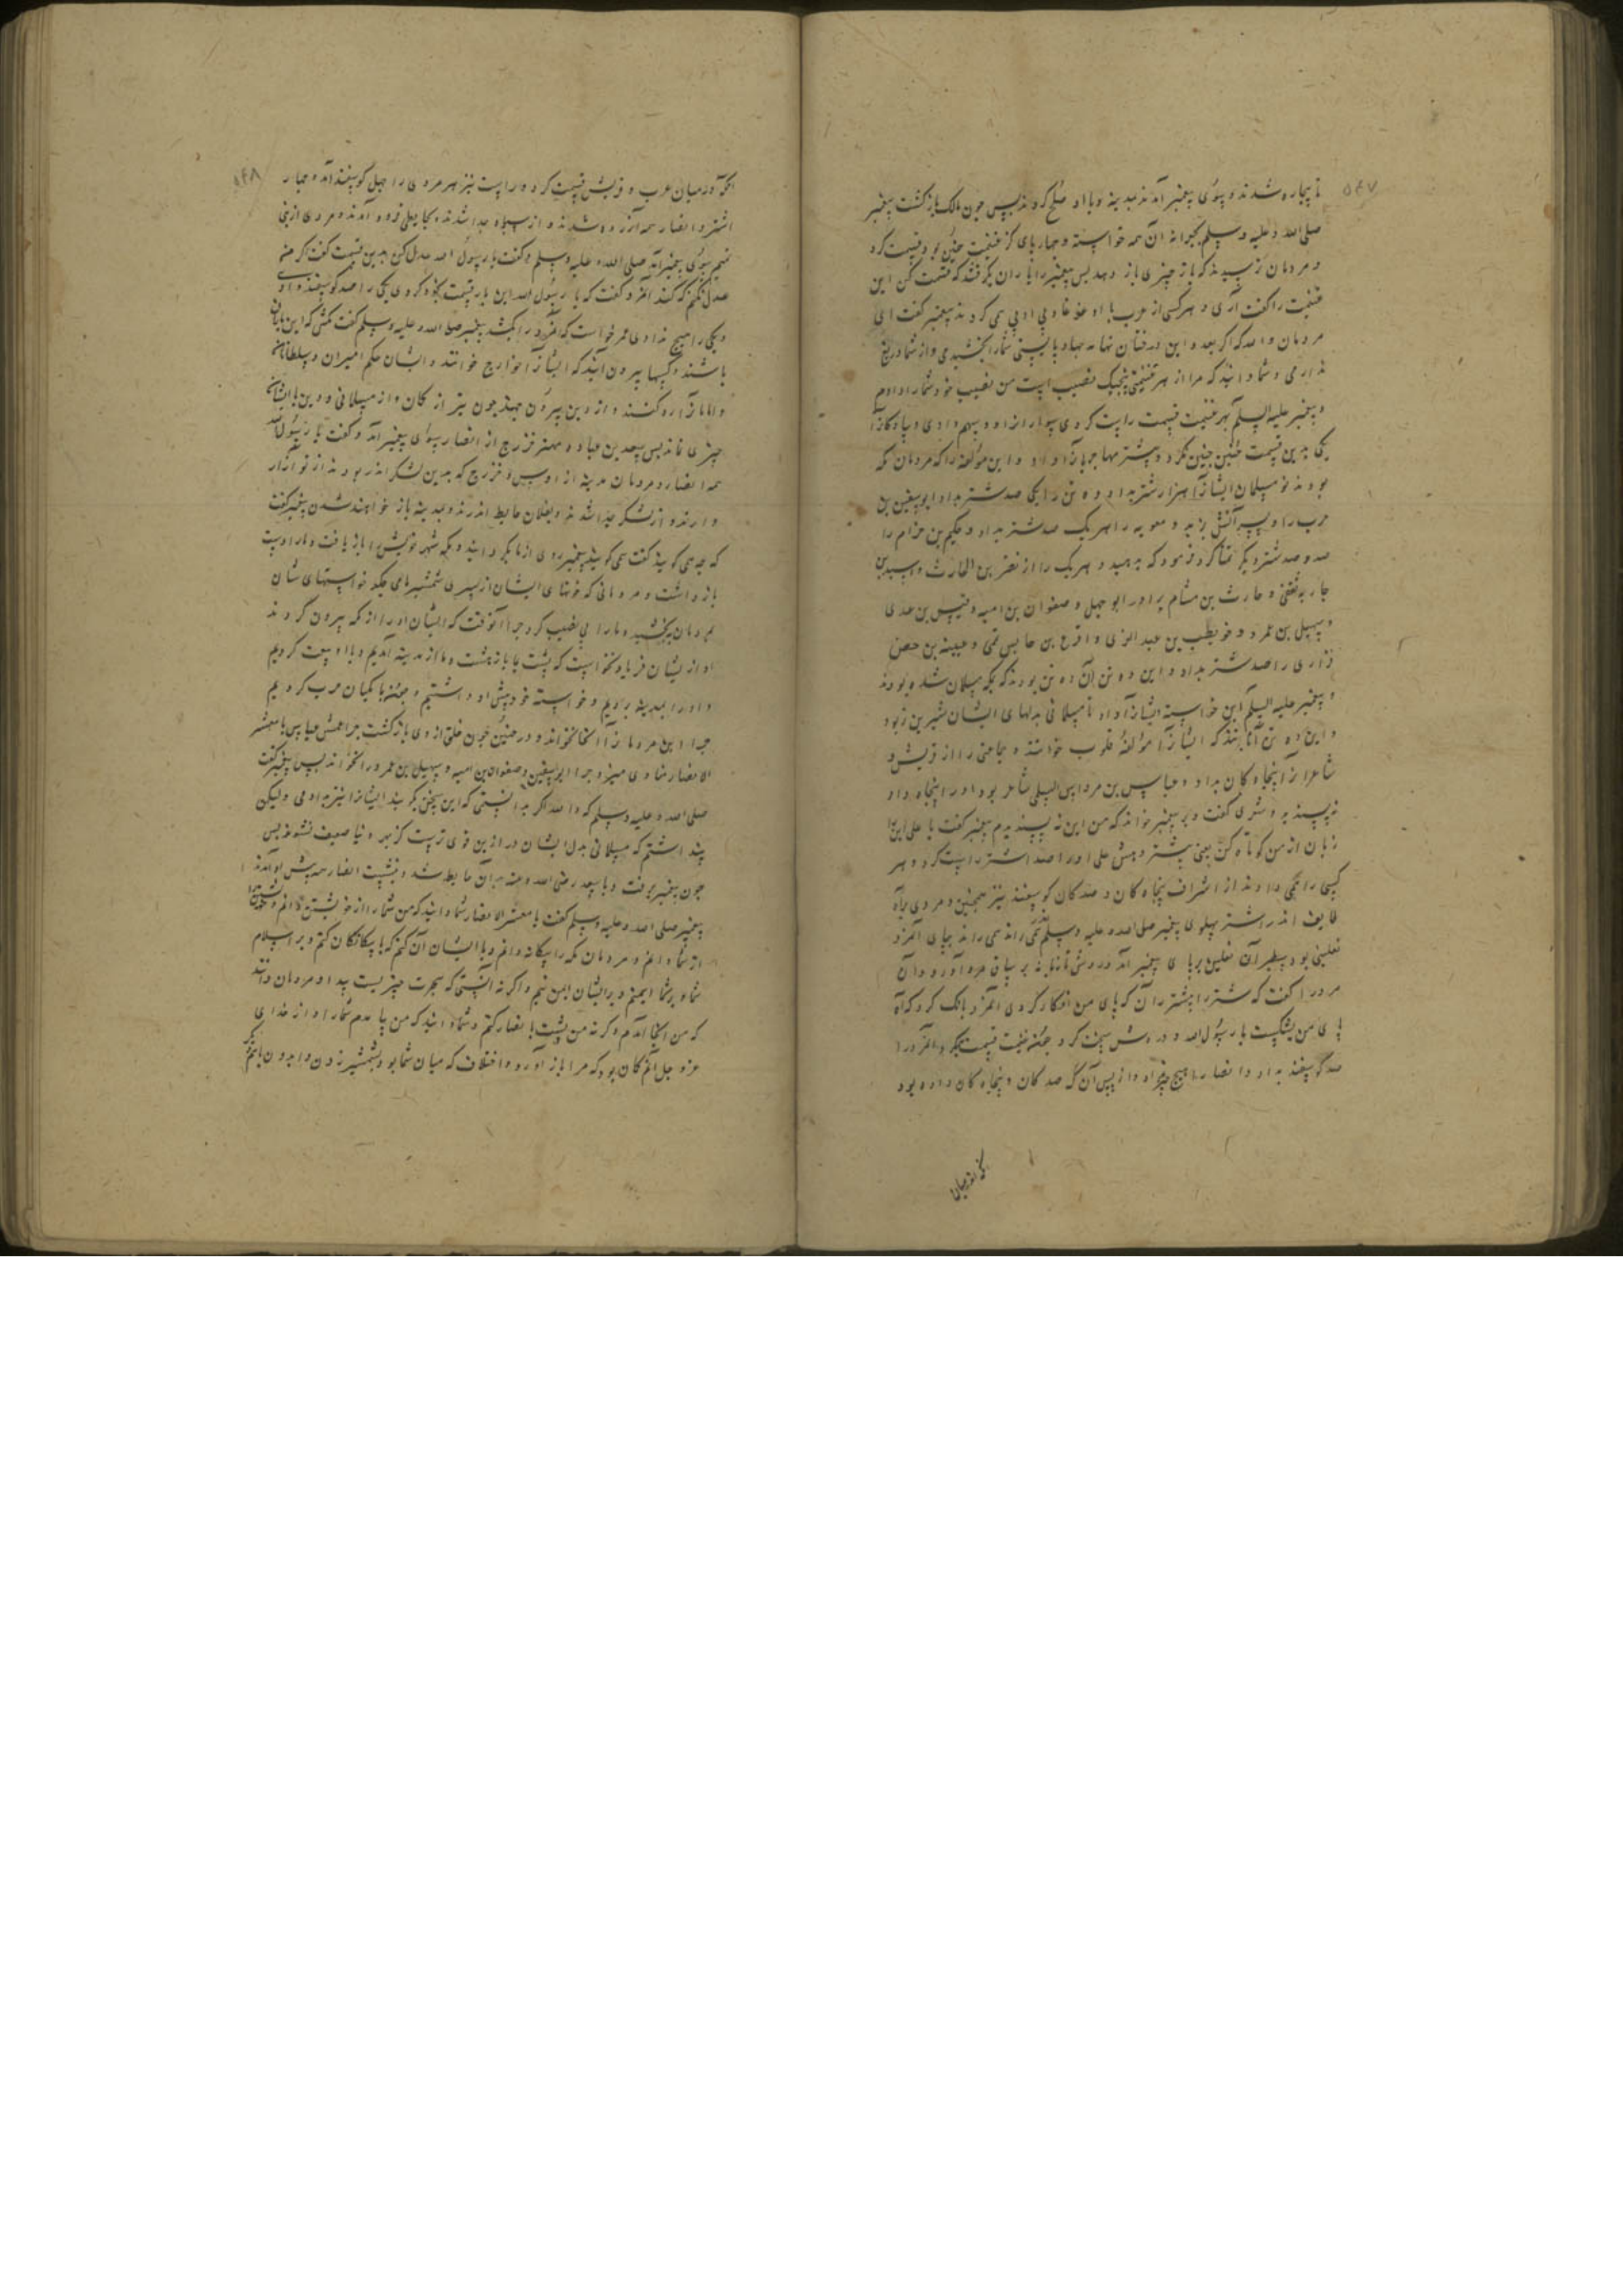 ۵۴۷
تا بیچاره شدند و بسوی پیغمبر آمدند بمدینه و با او صلح کردند پس چون مالک بازگشت پیغمبر
صلی الله علیه وسلم بجعرانه آن همه خواسته و چهارپای کز غنیمت حنین بود قسمت کرد
و مردمان ترسیدند که باز چیزی باز دهد پس پیغمبر را یاران بگرفتند که قسمت کن این
غنیمت را گفت آری و هر کسی از عرب با او غوغا و بی ادبی می کردند پیغمبر گفت ای
مردمان والله که اگر بعدد این درختان تهامه چهارپایستی شما را بخشیدمی و از شما دریغ
ندارمی و شما دانید که مرا از هر غنیمتی پنجیک نصیب است من نصیب خود شما را دادم
و پیغمبر علیه السلم هر غنیمت قسمت راست کردی سوار را از او دو سهم دادی و پیادگانرا
یکی بدین قسمت حنین چنین نکرد و بیشتر مهاجریانرا داد و این مؤلفه را که مردمان مکه
بودند نو مسلمان ایشانرا هزار شتر بداد ده تن را یکی صد شتر بداد ابوسفین بن
حرب را و پسرانش یزید و معویه را هر یک صد شتر بداد و حکیم بن حزام را
صد و صد شتر دیگر تقاضا کرد فرمود که بدهید و هر یک را از نضر بن الحارث و اسید بن
جاریه ثقفی و حارث بن هشام برادر ابو جهل و صفوان بن امیه و قیس بن عدی
و سهیل بن عمرو و حویطب بن عبد العزی و اقرع بن حابس تمی و عیینه بن حصن
فزاری را صد شتر بداد و این ده تن آن ده تن بودند که بمکه مسلمان شده بودند
و پیغمبر علیه السلم این خواسته ایشانرا داد تا مسلمانی بدلهای ایشان شیرین بود
و این ده تن آنانند که ایشانرا مؤلفة قلوب خوانند و جماعتی را از قریش و
شاعرانرا پنجاه کان بداد و عباس بن مرداس السلمی شاعر بود او را پنجاه داد
نپسندید و شعری گفت و بر پیغمبر خواند که من این نه پسندیدم پیغمبر گفت یا علی این
زبان از من کوتاه کن یعنی بیشتر دهش علی او را صد اشتر راست کرد و هر
کسی را همی دادند از اشراف پنجاه کان و صد کان گوسفند نیز همچنین و مردی براه
طایف اندر اشتر پهلوی پیغمبر صلی الله علیه وسلم همی راند همی راند بپای آنمرد
نعلینی بود سطبر آن نعلین برپای پیغمبر آمد در رفتن تازیانه بر ساق مرد آورد و آن
مرد را گفت که شتر را پیشتر ران که پای من افکار کردی آنمرد بانک کرد که آه
پای من بشکست یا رسول الله و درویش سخت کرد چون غنیمت قسمت میکرد آنمرد را
صد گوسفند بداد و انصار را هیچ چیز نداد و از پس آن که صد کان و پنجاه کان داده بود
کی اندر میان
۵۴۸
انکه در میان عرب و قریش قسمت کرد و راست نیز هر مردی را چهل گوسفند آمد و چهار
اشتر و انصار همه آزرده شدند و از سپاه جدا شدند و بجایعلی فرود آمدند و مردی از بنی
تمیم بسوی پیغمبر آمد صلی الله علیه وسلم و گفت یا رسول الله عدل کن بدین قسمت گفت اگر من
عدل نکنم که کند آنمرد گفت که یا رسول الله این بار قسمت نکرده کردی یکی را صد گوسفند دادی
و یکی را هیچ ندادی عمر خواست که آنمرد را بکشد پیغمبر صلی الله علیه وسلم گفت مکش که این را یاران
باشند و کسها بیرون آیند که ایشانرا خوارج خوانند و ایشان حکم امیران و سلطانان
و امامانرا رد کنند و از دین بیرون جهند چون تیر از کمان و از مسلمانی و دین با ایشان
چیزی نماند پس سعد بن عباده مهتر خزرج از انصار بسوی پیغمبر آمد و گفت یا رسول الله
همه انصار و مردمان مدینه از اوس و خزرج که بدین لشکر اندر بودند از تو آزار
دارند و از لشکر جدا شدند و بفلان حایط اندرند و بمدینه باز خواهند شدن پیغمبر گفت
که چه می گویند گفت می گویند پیغمبر روی از ما بگردانید و بمکه شهر خویش را باز یافت و ما را دست
باز داشت و مردمانی که خونهای ایشان از سر شمشیرهای ما میچکد خواستهای شان
بمردمان بخشید و ما را بی نصیب کرد چرا آنوقت که ایشان او را از مکه بیرون کردند
او از ایشان فریاد نخواست که پشت با باز نهشت و ما از مدینه آمدیم و با او بیعت کردیم
و او را بمدینه بردیم و خواسته خود پیش او داشتیم و بهمه با کمیان حرب کردیم
چرا این مردمانرا آنجا نخواند و در حنین چون خلق از وی بازگشت چرا عمش عباس یا معشر
الانصار منادی میزد و چرا ابوسفین و صفوان بن امیه و سهیل بن عمرو را نخواند پس پیغمبر گفت
صلی الله علیه وسلم که والله اگر بدانستمی که این سخن گویند ایشانرا نیز بدادمی ولیکن
پنداشتم که مسلمانی بدل ایشان در ازین قوی ترست کز بهر دنیا ضعیف نشوند پس
چون پیغمبر برفت و با سعد رضی الله عنه بدان حایط شد و بنشست انصار همه پیش او آمدند
پیغمبر صلی الله علیه وسلم گفت یا معشر الانصار شما دانید که من شما را از خویشتن دانم و خویشتن
از شما دانم و مردمان مکه را بیگانه دانم و با ایشان آن کنم که با بیگانگان کنم و بر اسلام
شما و بر شما ایمنم و بر ایشان ایمن نیم و اگر نه آنستی که هجرت چیزیست پیدا و مردمان دانند
که من آنجا آمدم و گرنه من پشت با انصار کنم و شما دانید که من یا مدم شما را و از خدای
عز و جل آنم گمان بود که مرا باز آورد و اختلاف که میان شما بود و شمشیر زدن و اندوه تان بکم